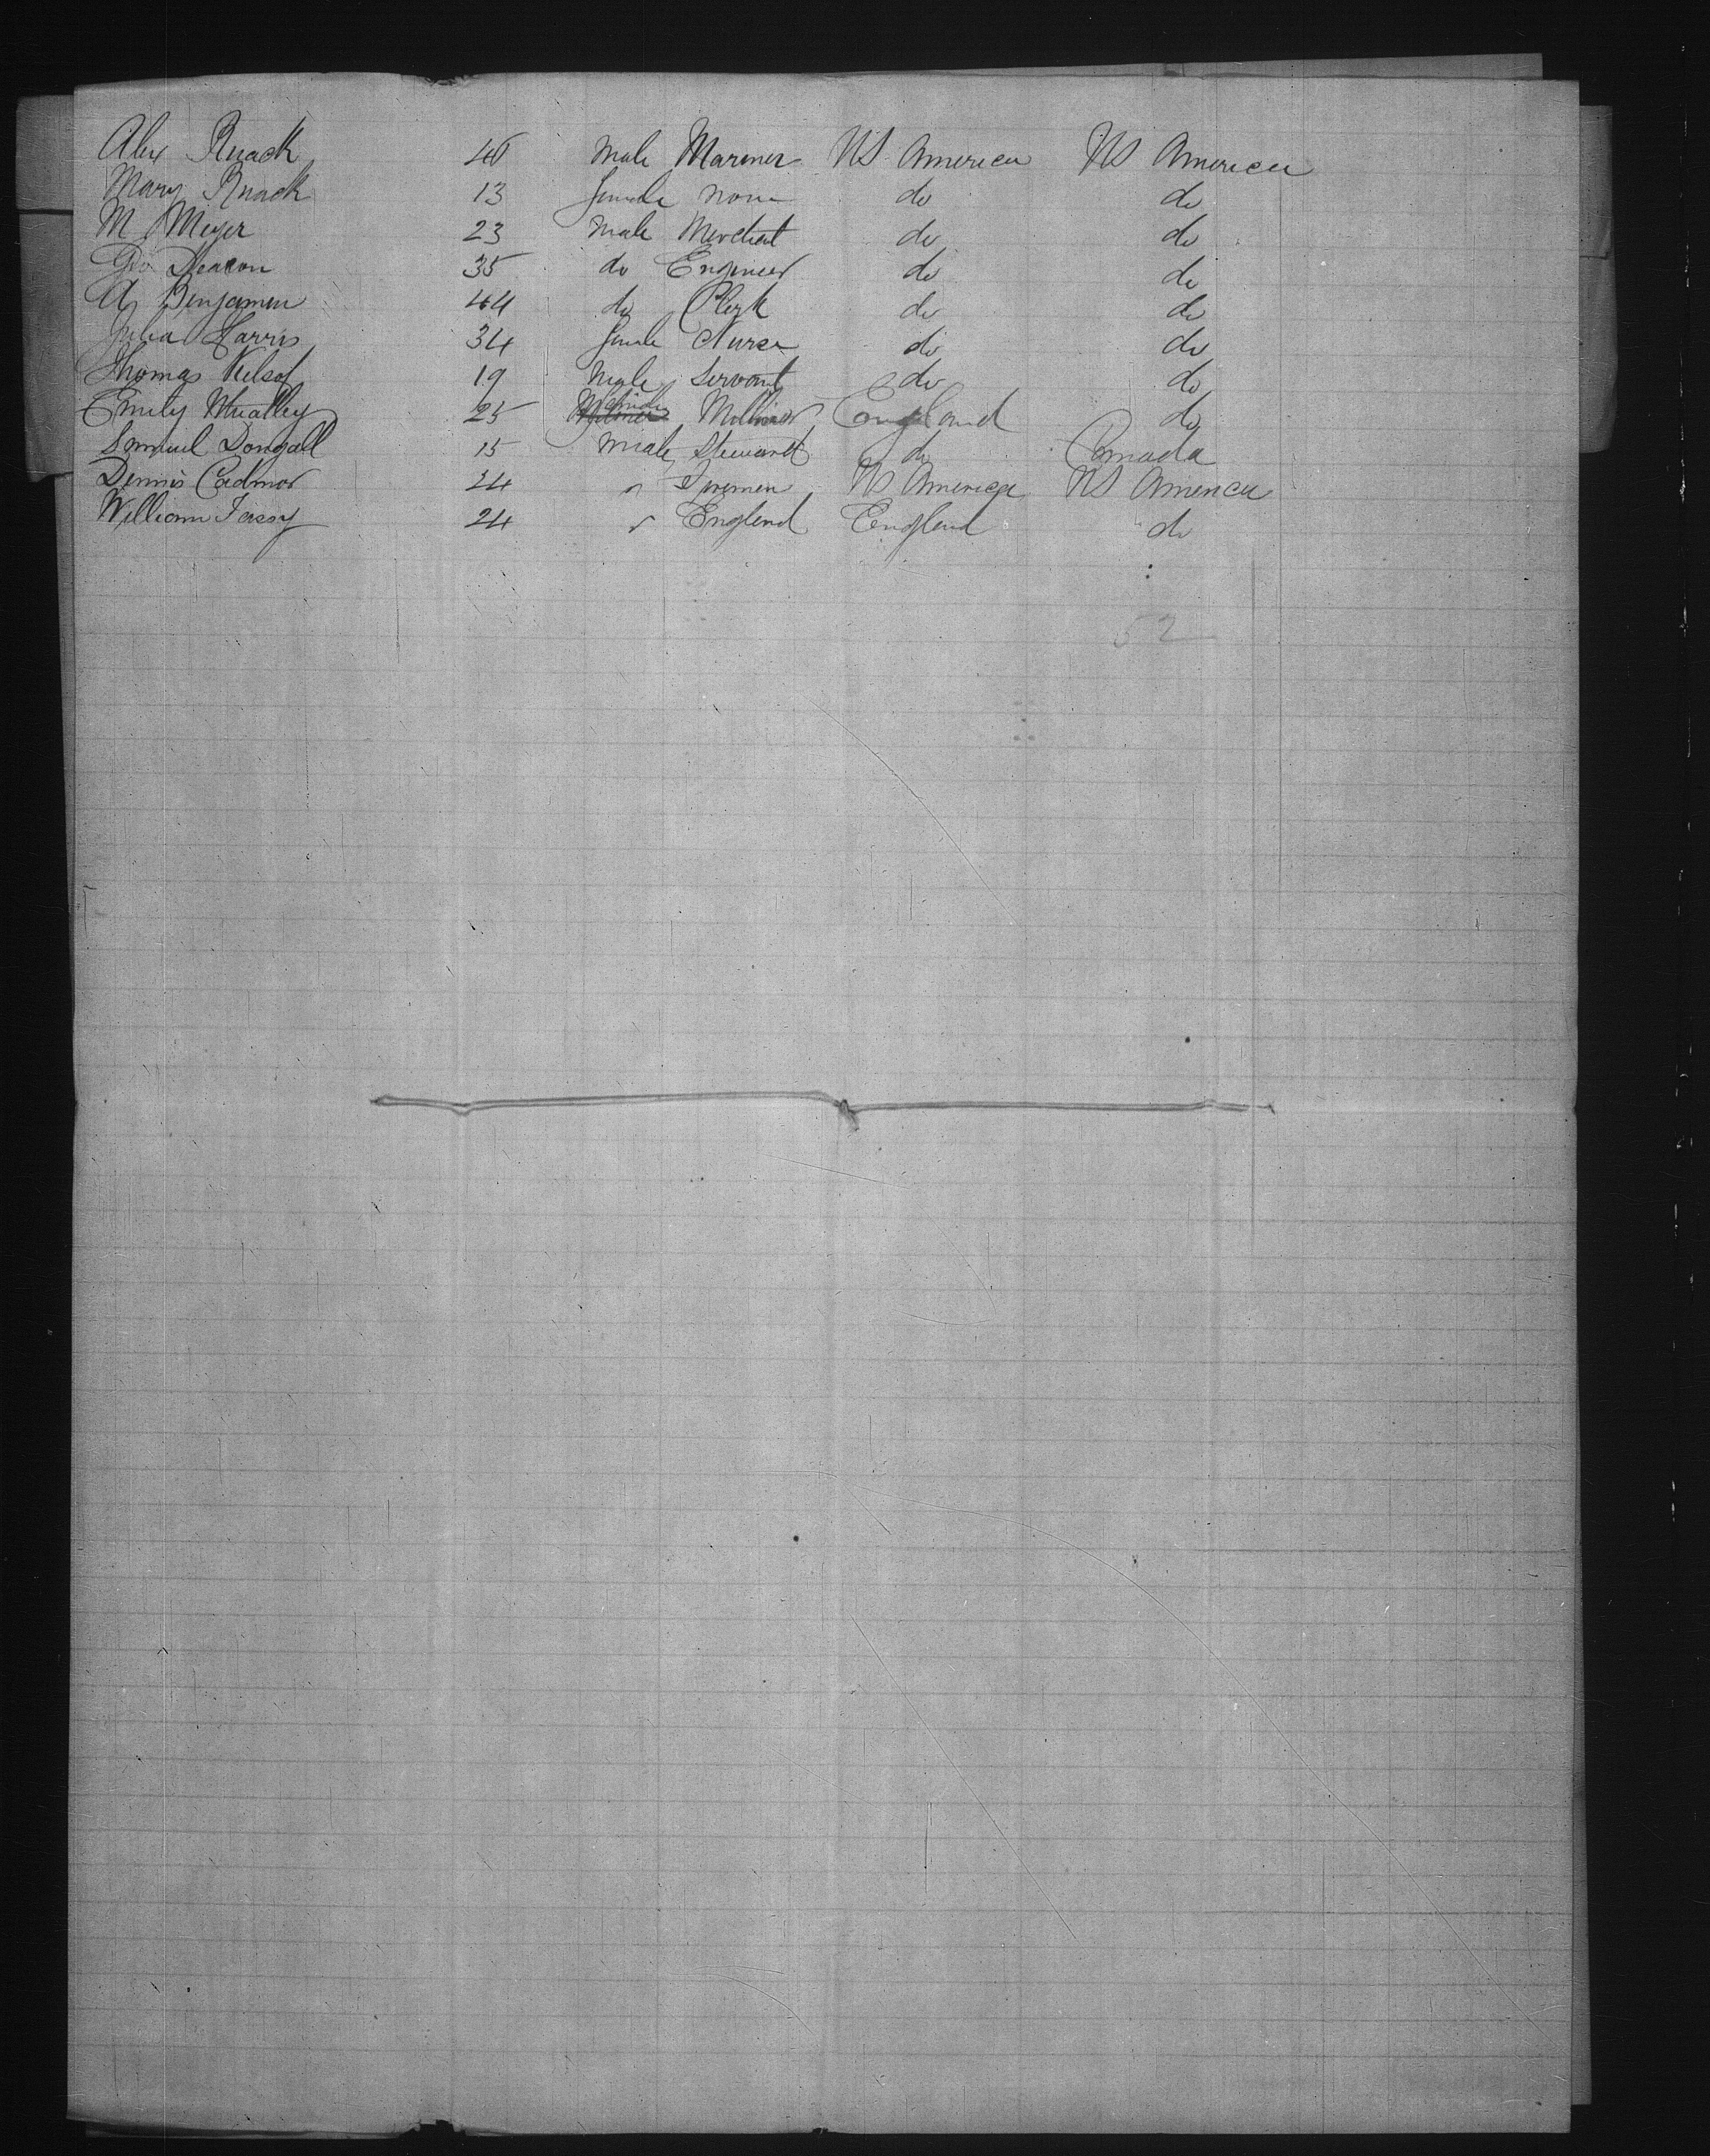 Alex Ruack 40 male Mariner US America US America
Mary Ruack 13 female none do do
M Meyer 23 male Merchat do do
Geo Deacon 35 do Engineer do do
A Benjamin 44 do Clerk do do
Julia Harris 34 female Nurse do do
Thomas 19 Male Servant do do
Emily 25 Milliner England do
Samuel Dougall 15 male Steward do Canada
Dennis 24 " Firemen US America US America
William 24 " England England do
52